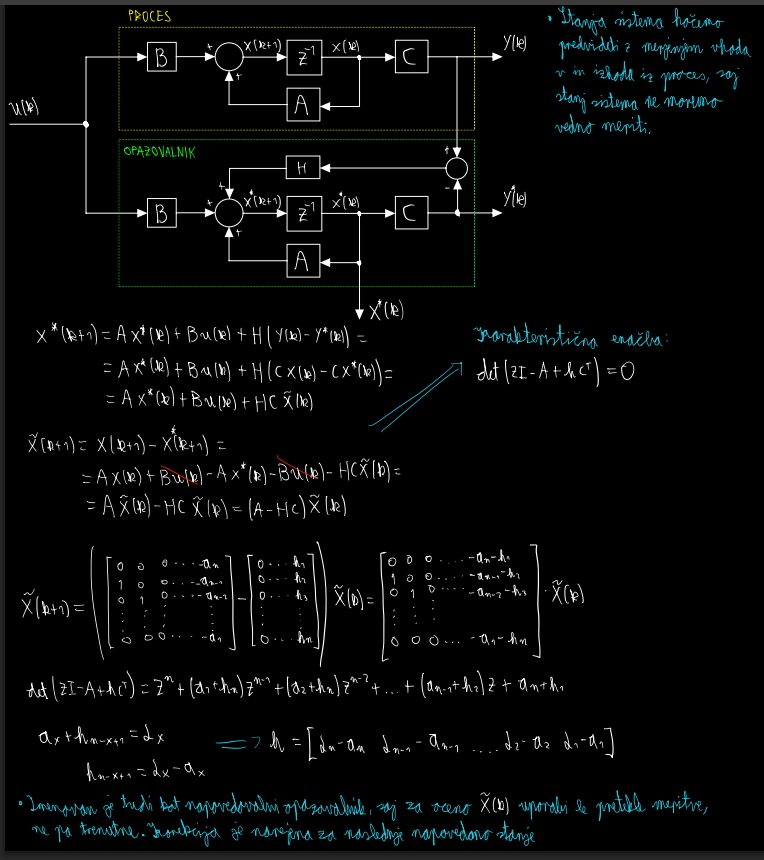 PROCES
• Stanja sistema hočemo
predvideti z merjenjem vhoda
v in izhoda iz proces, saj
stanj sistema ne moremo
vedno meriti.
u(k)
B
+
+
x(k+1)
z⁻¹
x(k)
C
y(k)
A
OPAZOVALNIK
H
+
-
B
+
+
+
x*(k+1)
z⁻¹
x*(k)
C
y*(k)
A
x*(k)
x*(k+1) = A x*(k) + B u(k) + H(y(k) - y*(k)) =
= A x*(k) + B u(k) + H(C x(k) - C x*(k)) =
= A x*(k) + B u(k) + HC x̃(k)
Karakteristična enačba:
det(zI - A + hCᵀ) = 0
x̃(k+1) = x(k+1) - x*(k+1) =
= A x(k) + B u(k) - A x*(k) - B u(k) - HC x̃(k) =
= A x̃(k) - HC x̃(k) = (A - HC) x̃(k)
x̃(k+1) = ( [ 0 0 0 ..... -aₙ
1 0 0 ..... -aₙ₋₁
0 1 0 ..... -aₙ₋₂
0 0 0 ..... -a₁ ] - [ 0 .... h₁
0 .... h₂
0 .... h₃
0 .... hₙ ] ) x̃(k) = [ 0 0 0 ..... -aₙ-h₁
1 0 0 ..... -aₙ₋₁-h₂
0 1 0 ..... -aₙ₋₂-h₃
0 0 0 .... -a₁-hₙ ] · x̃(k)
det(zI - A + hCᵀ) = zⁿ + (a₁+hₙ)zⁿ⁻¹ + (a₂+hₙ)zⁿ⁻² + ... + (aₙ₋₁+h₂)z + aₙ+h₁
aₓ + hₙ₋ₓ₊₁ = dₓ
hₙ₋ₓ₊₁ = dₓ - aₓ
=> h = [dₙ-aₙ dₙ₋₁-aₙ₋₁ .... d₂-a₂ d₁-a₁]
• Imenovan je tudi kot napovedovalni opazovalnik, saj za oceno x̃(k) uporabi le pretekle meritve,
ne pa trenutne. Korekcija je narejena za naslednje napovedano stanje